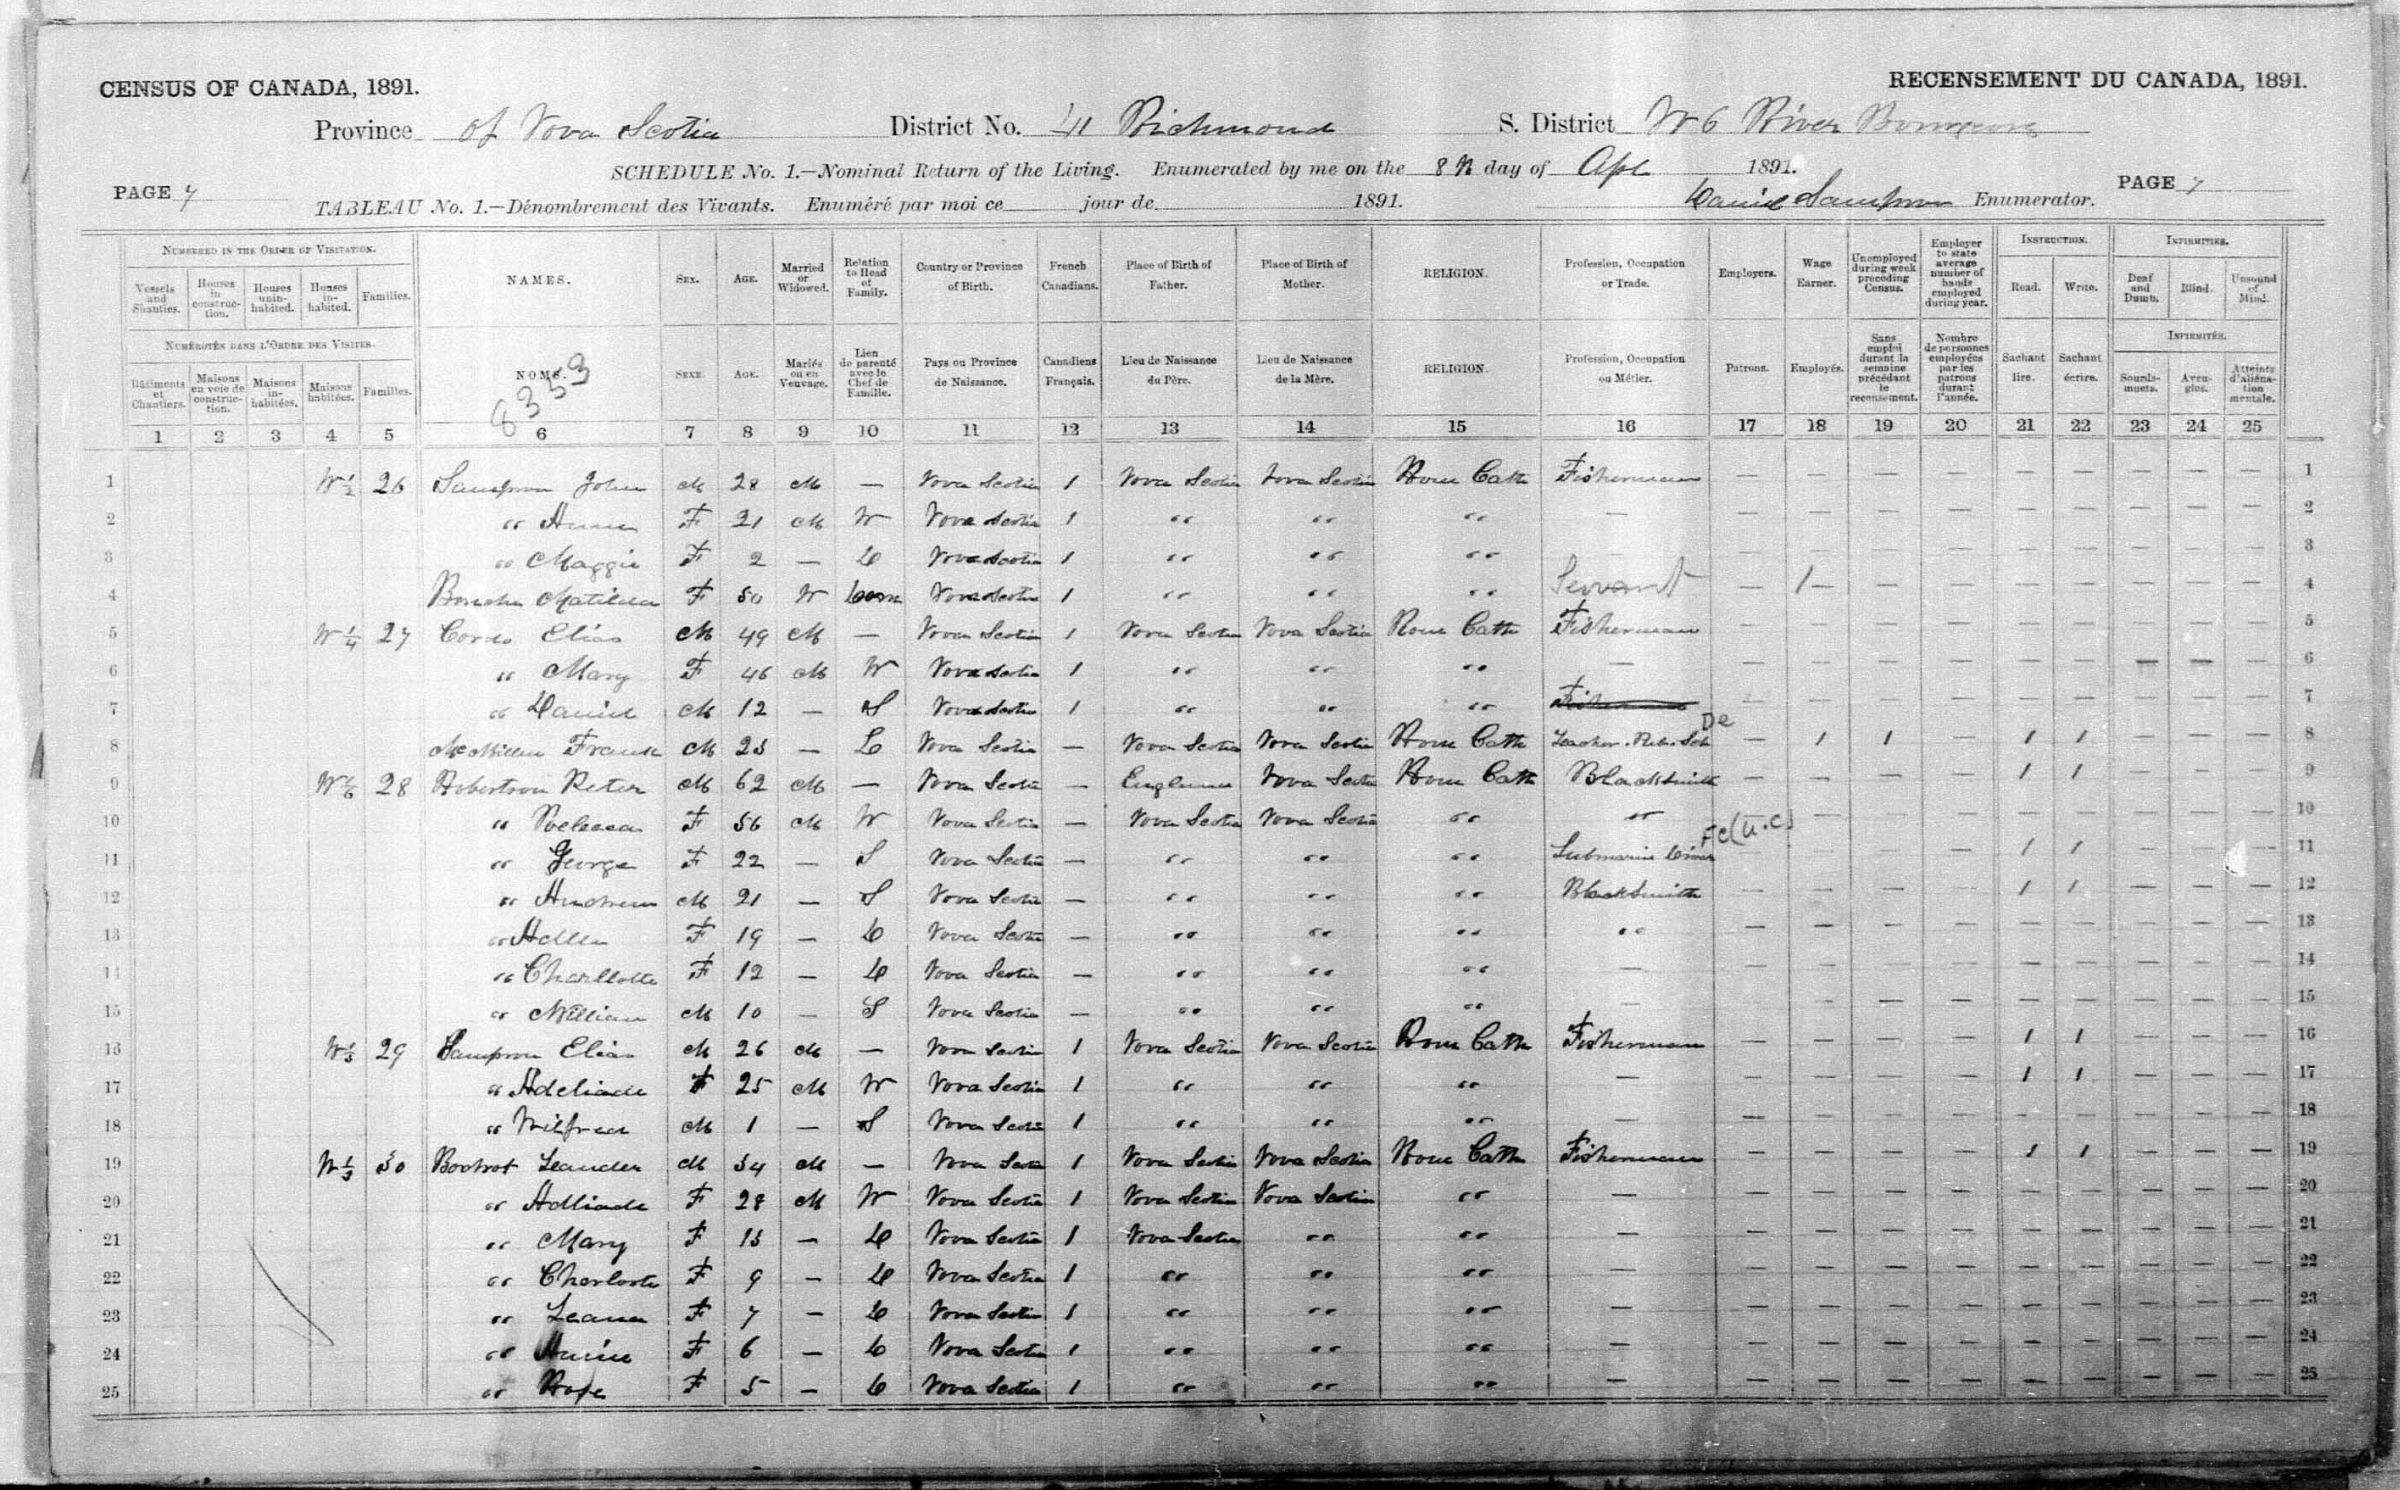 CENSUS OF CANADA, 1891. RECENSEMENT DU CANADA, 1891.
Province of Nova Scotia District No. 41 Richmond S. District W 6 River Bourgeois
SCHEDULE No. 1.—Nominal Return of the Living. Enumerated by me on the 8th day of Apl 1891.
PAGE 7 TABLEAU No. 1.—Dénombrement des Vivants. Enuméré par moi ce jour de 1891. Daniel Sampson Enumerator. PAGE 7
NUMBERED IN THE ORDER OF VISITATION. NAMES. SEX. AGE. Married or Widowed. Relation to Head of Family. Country or Province of Birth. French Canadians. Place of Birth of Father. Place of Birth of Mother. RELIGION. Profession, Occupation or Trade. Employers. Wage Earner. Unemployed during week preceding Census. Employer to state average number of hands employed during year. INSTRUCTION. INFIRMITIES.
Vessels and Shanties. Houses in construction. Houses uninhabited. Houses inhabited. Families. Read. Write. Deaf and Dumb. Blind. Unsound of Mind.
NUMÉROTÉS DANS L'ORDRE DES VISITES. NOMS. SEXE. AGE. Mariés ou en Veuvage. Lien de parenté avec le Chef de Famille. Pays ou Province de Naissance. Canadiens Français. Lieu de Naissance du Père. Lieu de Naissance de la Mère. RELIGION. Profession, Occupation ou Métier. Patrons. Employés. Sans emploi durant la semaine précédant le recensement. Nombre de personnes employées par les patrons durant l'année. Sachant lire. Sachant écrire. INFIRMITÉS.
Bâtiments et Chantiers. Maisons en voie de construction. Maisons inhabitées. Maisons habitées. Familles. Sourds-muets. Aveugles. Atteints d'aliénation mentale.
8333
1 2 3 4 5 6 7 8 9 10 11 12 13 14 15 16 17 18 19 20 21 22 23 24 25
1 W 1/2 26 Sampson John M 28 M — Nova Scotia 1 Nova Scotia Nova Scotia Rom Cath Fisherman — — — — — — — — — 1
2 " F 21 M W Nova Scotia 1 " " " — — — — — — — — — — 2
3 " Maggie F 2 — D Nova Scotia 1 " " " — — — — — — — — — — 3
4 Matilda F 50 W Nova Scotia 1 " " " Servant — 1 — — — — — — — 4
5 W 1/4 27 Elias M 49 M — Nova Scotia 1 Nova Scotia Nova Scotia Rom Cath Fisherman — — — — — — — — — 5
6 " Mary F 46 M W Nova Scotia 1 " " " — — — — — — — — — — 6
7 " Daniel M 12 — S Nova Scotia 1 " " " Fisherman — — — — — — — — — 7
8 McMillan Frank M 23 — L Nova Scotia — Nova Scotia Nova Scotia Rom Cath Teacher Pub. Sch De — 1 1 — 1 1 — — — 8
9 W 1/6 28 Robertson Peter M 62 M — Nova Scotia — England Nova Scotia Rom Cath Blacksmith — — — — 1 1 — — — 9
10 " Rebecca F 56 M W Nova Scotia — Nova Scotia Nova Scotia " " — — — — — — — — — 10
11 " George F 22 — S Nova Scotia — " " " Submarine Diver Fc (n.c) — — — — 1 1 — — — 11
12 " Andrew M 21 — S Nova Scotia — " " " Blacksmith — — — — 1 1 — — — 12
13 " F 19 — D Nova Scotia — " " " " — — — — — — — — — 13
14 " Charllotte F 12 — D Nova Scotia — " " " — — — — — — — — — — 14
15 " William M 10 — S Nova Scotia — " " " — — — — — — — — — — 15
16 W 1/3 29 Sampson Elias M 26 M — Nova Scotia 1 Nova Scotia Nova Scotia Rom Cath Fisherman — — — — 1 1 — — — 16
17 " Adeliade F 25 M W Nova Scotia 1 " " " — — — — — 1 1 — — — 17
18 " Wilfred M 1 — S Nova Scotia 1 " " " — — — — — — — — — — 18
19 W 1/3 30 Boutrot Leander M 34 M — Nova Scotia 1 Nova Scotia Nova Scotia Rom Cath Fisherman — — — — 1 1 — — — 19
20 " Adliade F 28 M W Nova Scotia 1 Nova Scotia Nova Scotia " — — — — — — — — — — 20
21 " Mary F 13 — D Nova Scotia 1 Nova Scotia " " — — — — — — — — — — 21
22 " Charlotte F 9 — D Nova Scotia 1 " " " — — — — — — — — — — 22
23 " F 7 — D Nova Scotia 1 " " " — — — — — — — — — — 23
24 " Annie F 6 — D Nova Scotia 1 " " " — — — — — — — — — — 24
25 " Rose F 5 — D Nova Scotia 1 " " " — — — — — — — — — — 25